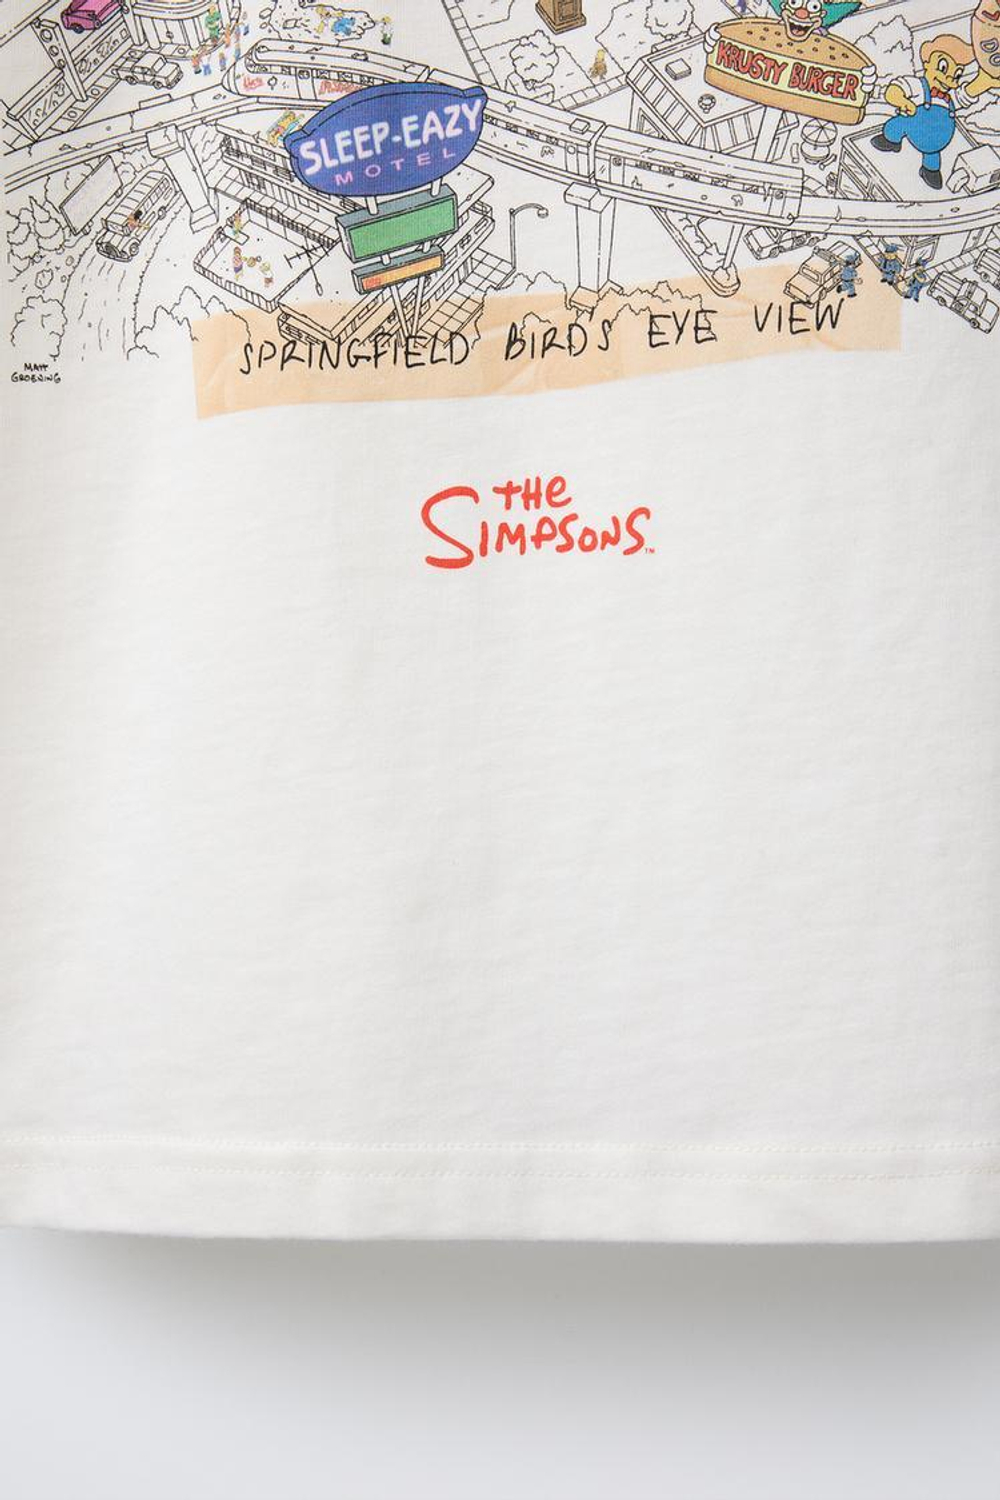 KRUSTY BURGER
SLEEP-EAZY
MOTEL
SPRINGFIELD BIRD'S EYE VIEW
MATT
GROENING
THE
SIMPSONS™